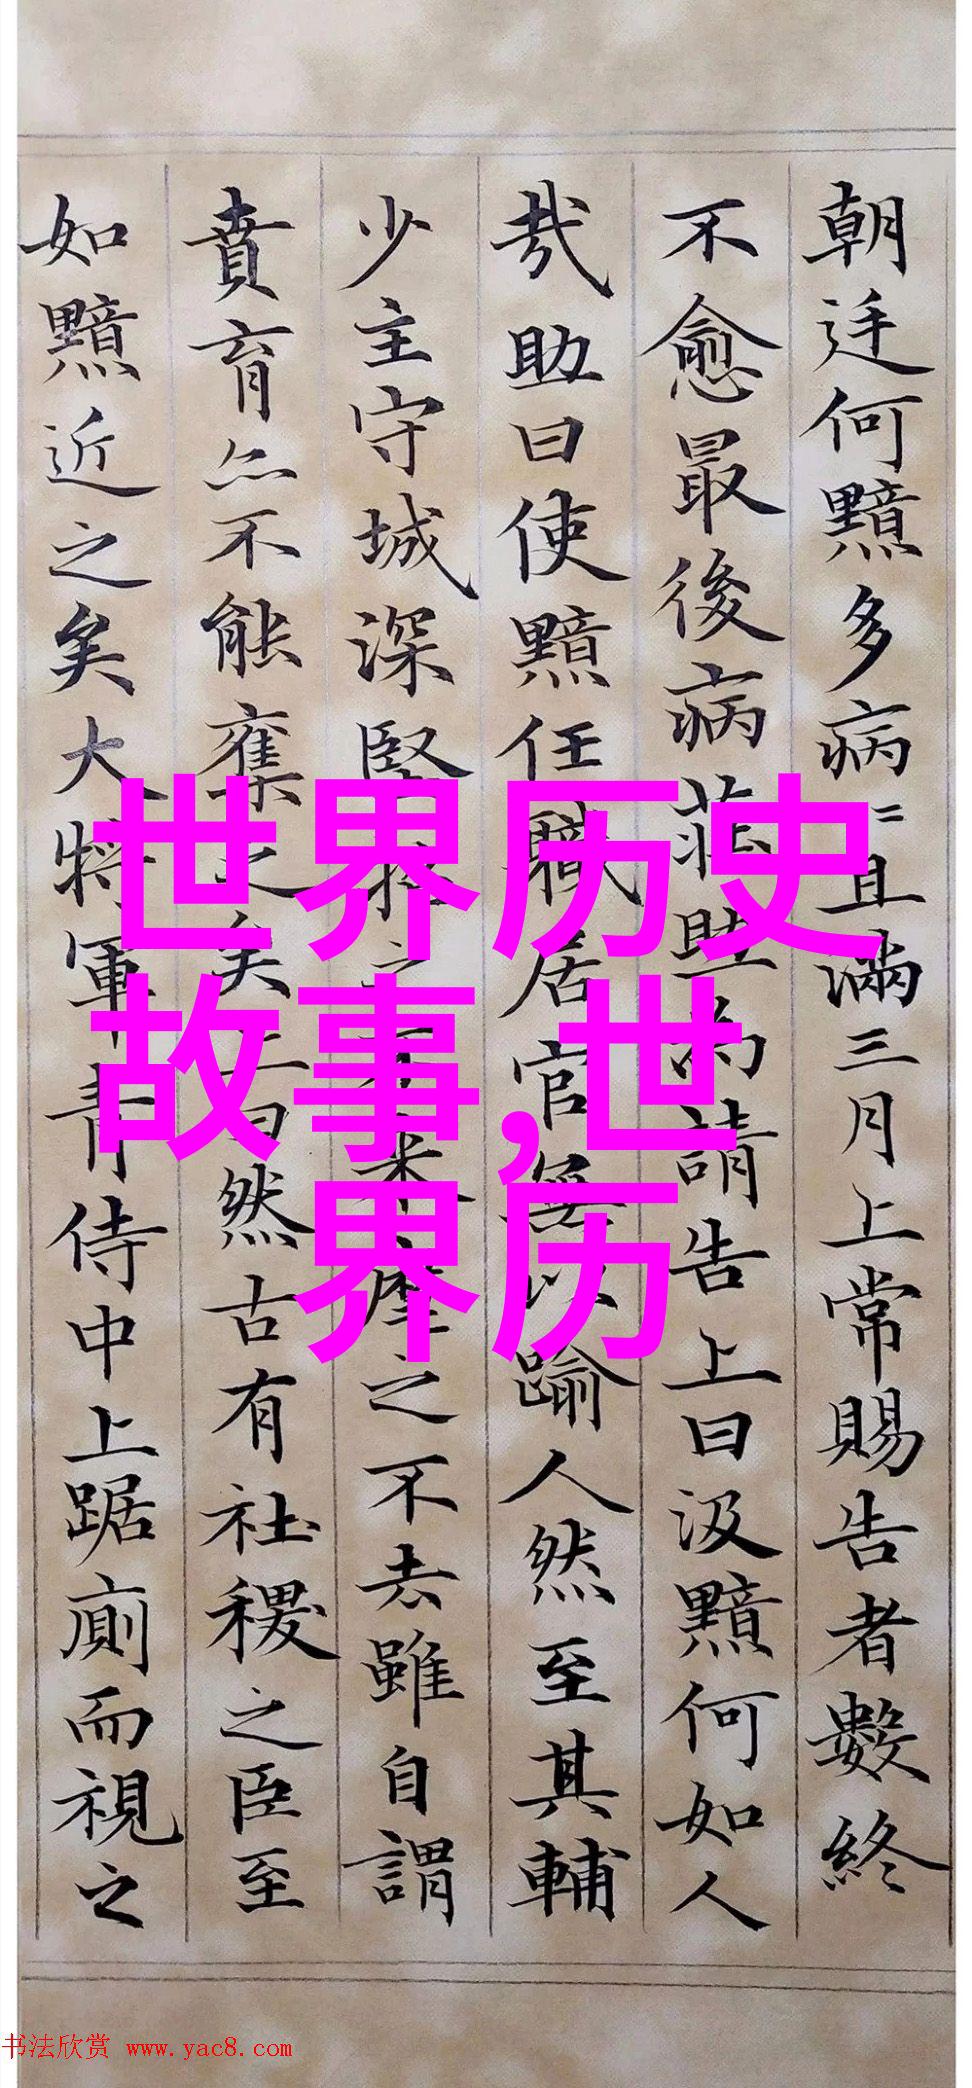 朝廷何黯多病〻且滿三月上常賜告者數終
不愈最後病莊助為請告上曰汲黯何如人
哉助曰使黯任職居官無以踰人然至其輔
少主守城深堅招之不來麾之不去雖自謂
賁育亦不能奪之矣上曰然古有社稷之臣至
如黯近之矣大將軍青侍中上踞廁而視之
世界历史
故事,世
界历
书法欣赏 www.yac8.com